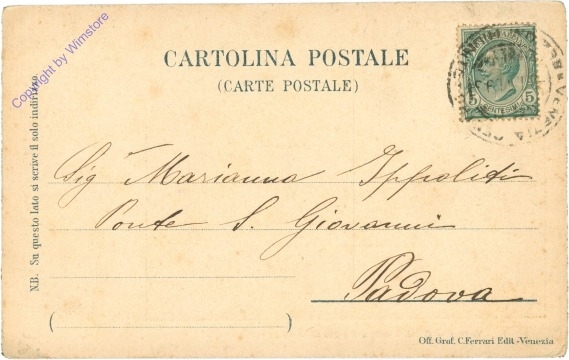 Copyright by Wimstore
CARTOLINA POSTALE
(CARTE POSTALE)
5 5
CENTESIMI
VENEZIA
N.B. Su questo lato si scrive il solo indirizzo.
Sig Marianna Ippoliti
Ponte S. Giovanni
Padova
Off. Graf. C. Ferrari Edit - Venezia